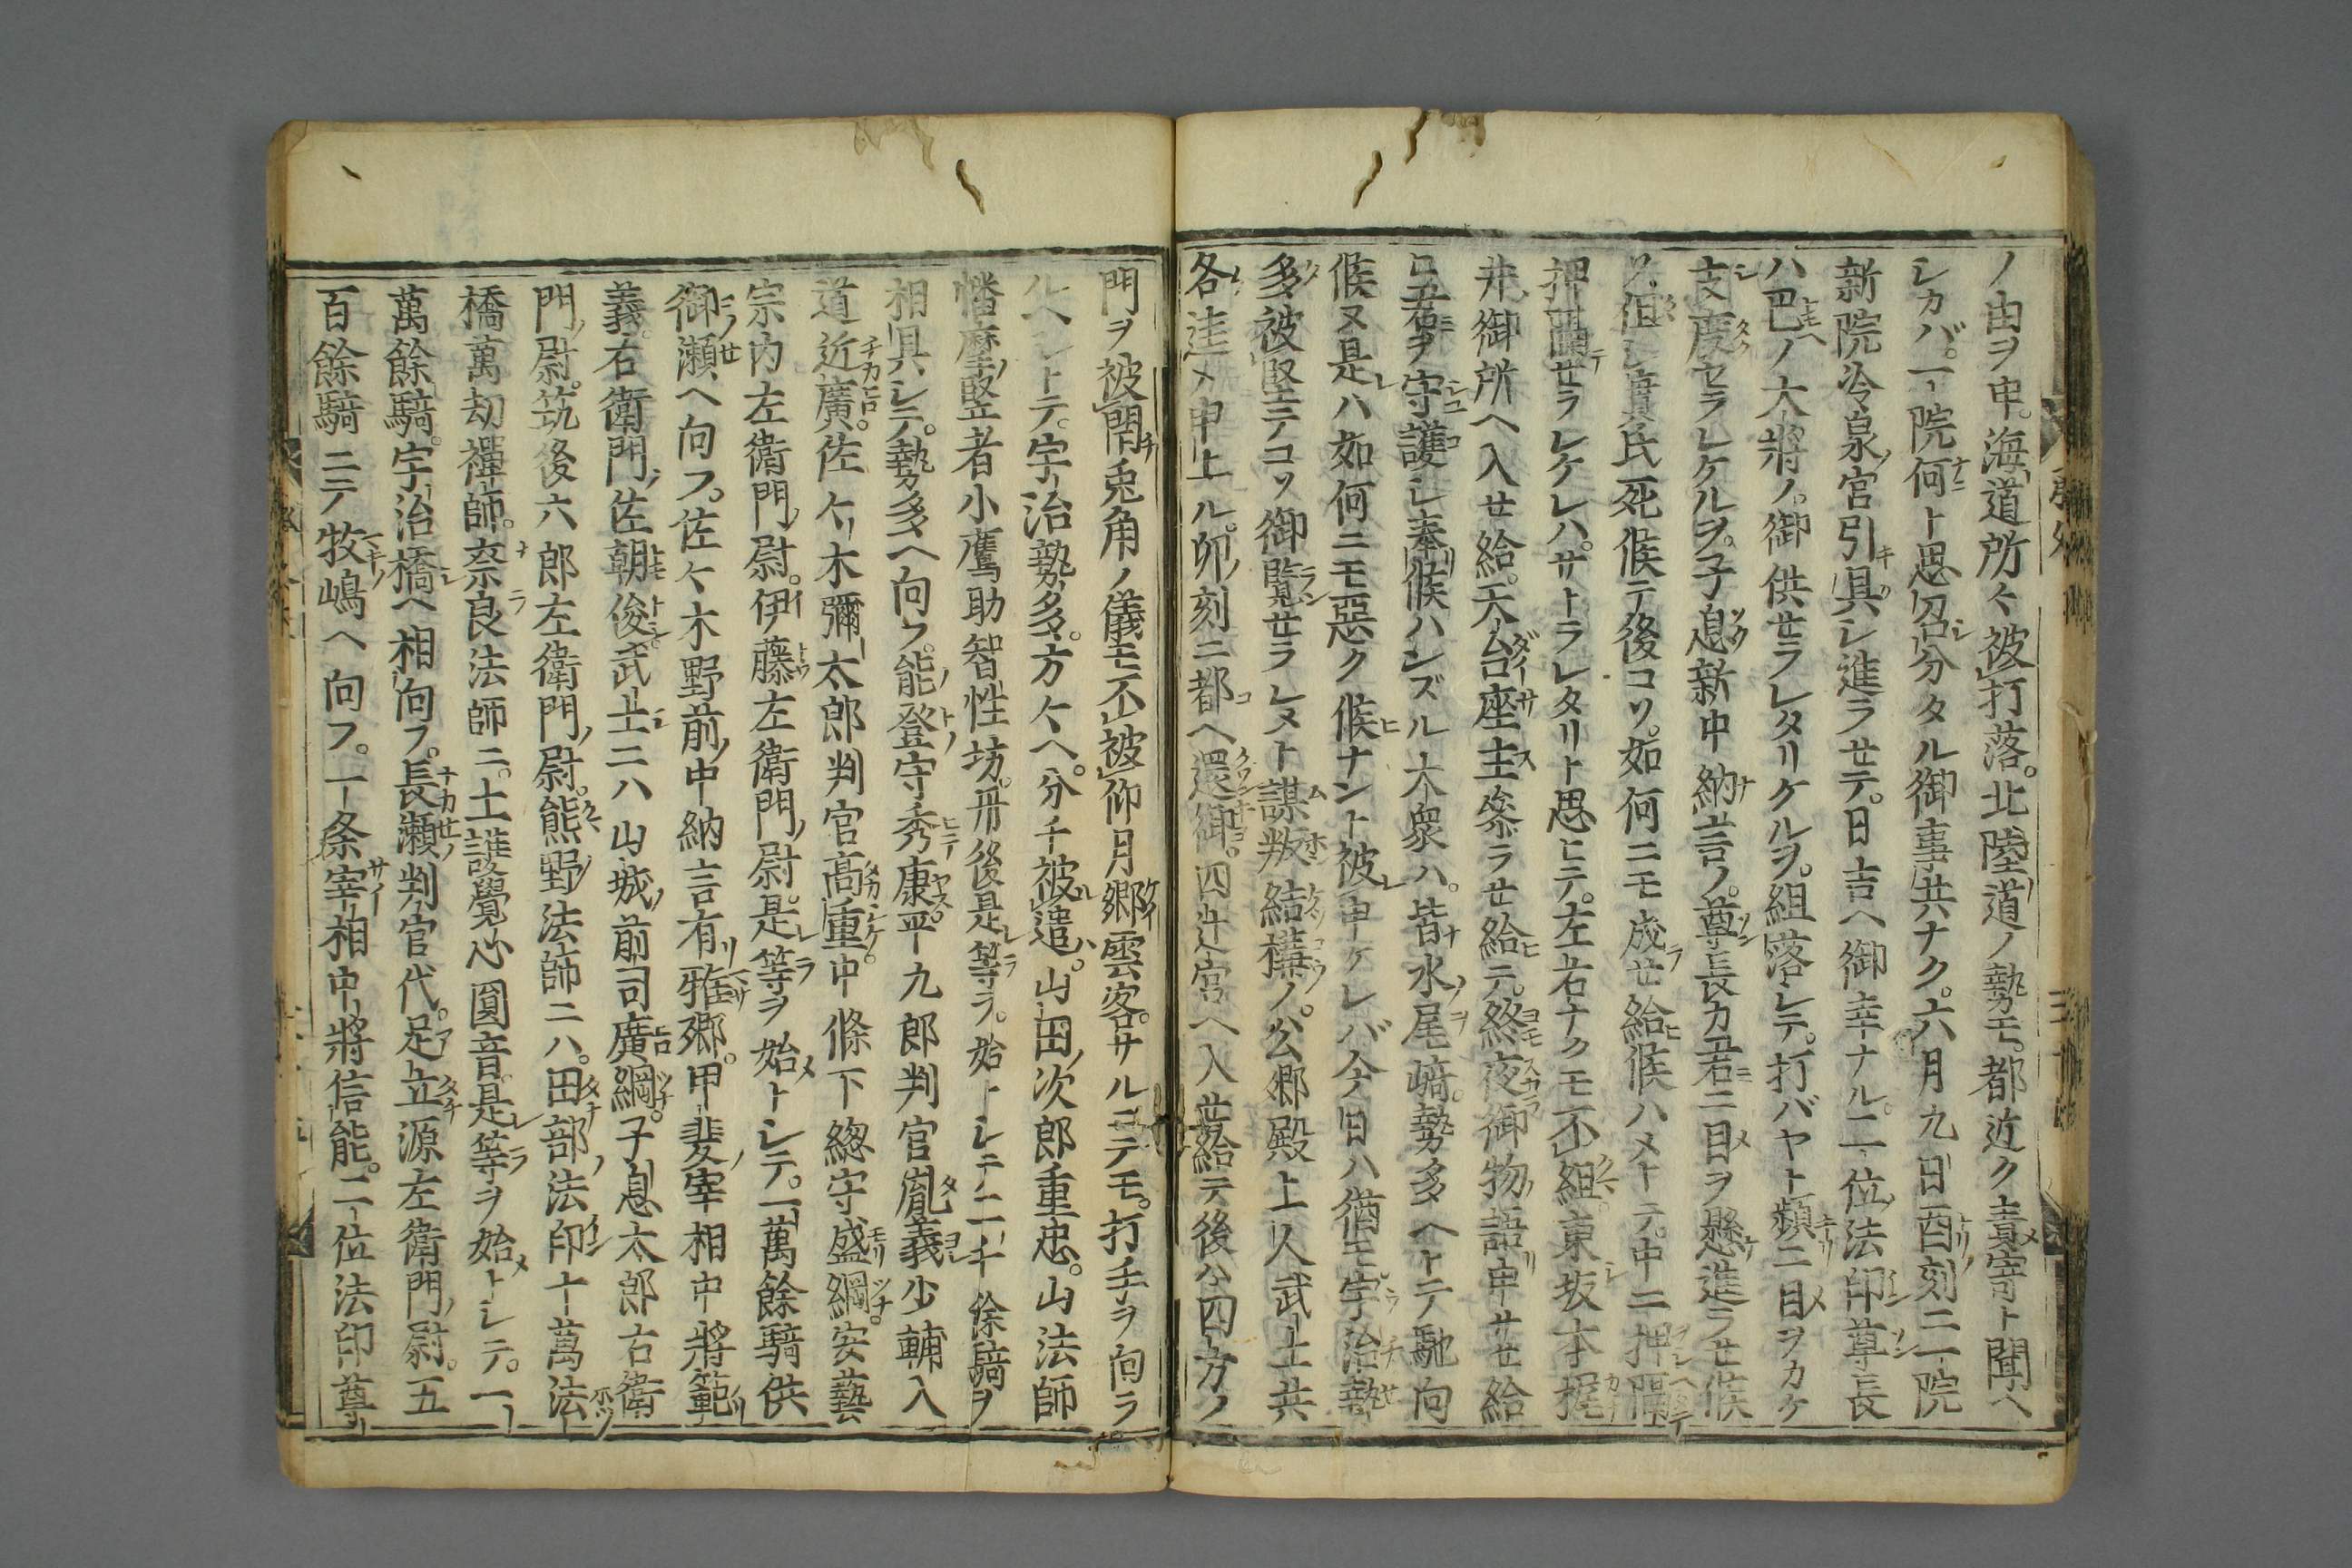 ノ由ヲ申。海道所々被打落。北陸道ノ勢モ。都近ク責寄ト聞ヘ
シカバ。一院何ト思召分タル御事共ナク。六月九日酉刻ニ一院
新院冷泉宮引具シ進ラセテ。日吉ヘ御幸ナル。二位法印尊長
ハ巴ノ大將ノ。御供セラレタリケルヲ。組落シテ。打バヤト頻ニ目ヲカケ
支度セラレケルヲ。子息新中納言ノ。尊長カ若ニ目ヲ懸進ラセ候
ハ。但シ實氏死候テ後コソ。如何ニモ成セ給候ハメトテ。中ニ押隔
押隔セラレケレハ。サトラレタリト思ヒテ。左右ナクモ不組東坂本梶
井御所ヘ入セ給。天台座主參ラセ給テ。終夜御物語申サセ給
若ヲ守護シ奉候ハンズル大衆ハ。皆水尾崎。勢多ヘトテ馳向
候又是ハ如何ニモ惡ク候ナント被申ケレバ今日ハ猶モ宇治勢
多被堅テコソ御覧セラレメト謀叛結構ノ。公卿殿上人武士共
各進メ申上ル。卯刻ニ都ヘ還御。四辻宮ヘ入セ給テ後公四方ノ
門ヲ被閇兎角ノ儀モ不被仰月卿雲客。サルニテモ。打手ヲ向ラ
ルヘシトテ。宇治勢多。方々ヘ。分チ被遣。山田次郎重忠。山法師
播磨竪者小鷹助智性坊。丹後是等ヲ。始トシテ二千餘騎ヲ
相具シテ。勢多ヘ向フ。能登守秀康平九郎判官胤義少輔入
道近廣。佐々木彌太郎判官高重。中條下總守盛綱。安藝
宗内左衛門尉。伊藤左衛門尉。是等ヲ始トシテ。一萬餘騎供
御瀬ヘ向フ。佐々木野前中納言有雅卿。甲斐宰相中將範
義。右衛門佐朝俊。武士ニハ山城前司廣綱。子息太郎右衛
門尉。筑後六郎左衛門尉。熊野法師ニハ。田部法印十萬法
橋萬劫禪師。奈良法師ニ。土護覺心圓音。是等ヲ始トシテ。一
萬餘騎。宇治橋ヘ相向フ。長瀬判官代。足立源左衛門尉。五
百餘騎ニテ牧嶋ヘ向フ。一条宰相中將信能。二位法印尊